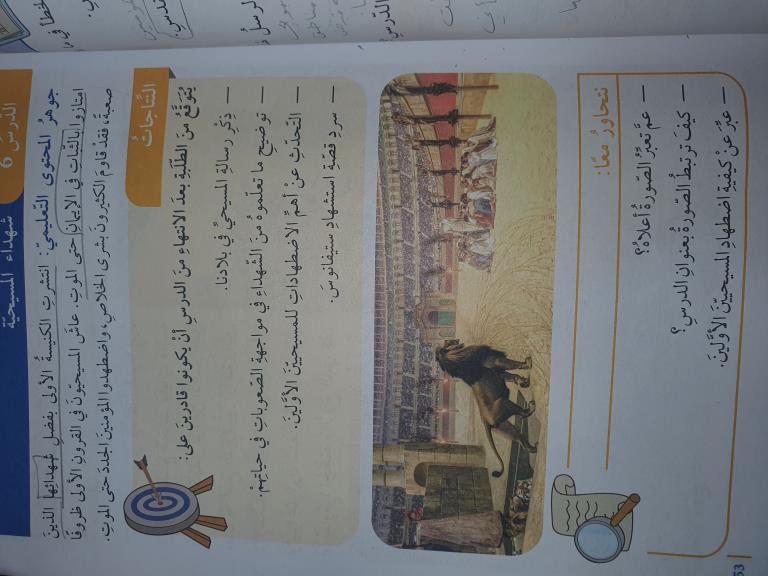 الدّرسُ 6
شهداء المسيحيّة
جوهرُ المحتوى التّعليميِّ: انتشرتِ الكنيسةُ الأولى بفضلِ شهدائِها الذينَ
امتازوا بالثّباتِ في الإيمانِ حتى الموتِ. عاشَ المسيحيّونَ في القرونِ الأولى ظروفًا
صعبةً، فقدْ قاومَ الكثيرونَ بشرى الخلاصِ، واضطهدوا المؤمنينَ الجددَ حتى الموتِ.
النّتاجاتُ
يُتَوَقَّعُ مِنَ الطّلبةِ بعدَ الانتهاءِ منَ الدرسِ أنْ يكونوا قادرينَ على:
– ذِكرِ رسالةِ المسيحيِّ في بلادنا.
– توضيحِ ما تعلّموهُ منَ الشّهداءِ في مواجهةِ الصّعوباتِ في حياتِهِمْ.
– التّحدّثِ عنْ أهمِّ الاضطهاداتِ للمسيحيّينَ الأوّلينَ.
– سردِ قصّةِ استشهادِ ستيفانوسَ.
نتحاورُ معًا:
– عمَّ تعبّرُ الصّورةُ أعلاهُ؟
– كيفَ ترتبطُ الصّورةُ بعنوانِ الدرسِ؟
– عبّرْ عنْ كيفيّةِ اضطهادِ المسيحيّينَ الأوّلينَ.
53